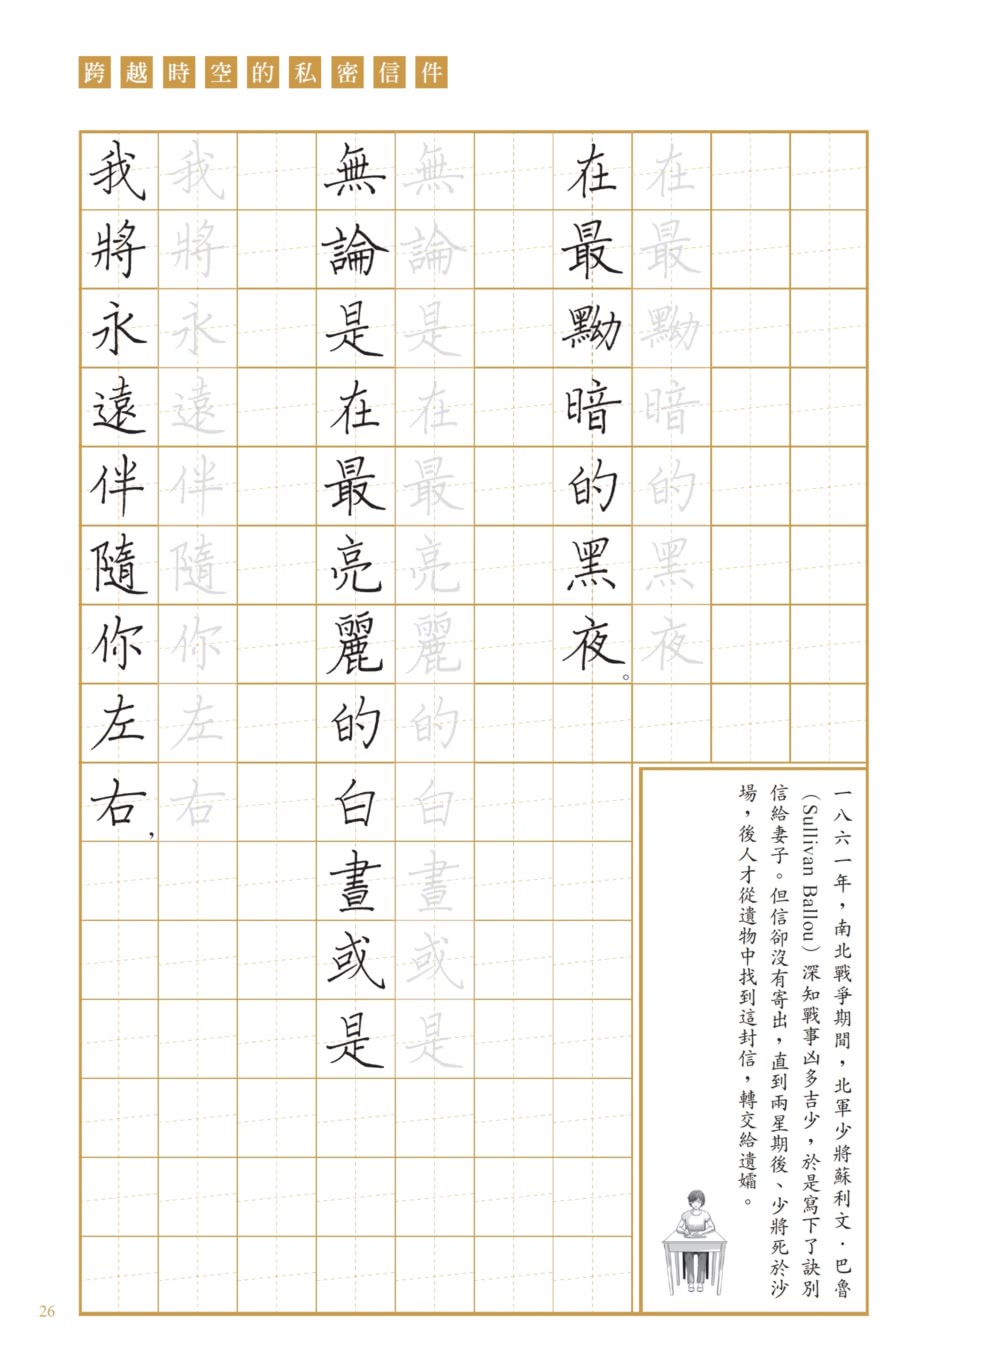 跨越時空的私密信件
我將永遠伴隨你左右，
我將永遠伴隨你左右
無論是在最亮麗的白晝或是
無論是在最亮麗的白晝或是
在最黝暗的黑夜。
在最黝暗的黑夜
一八六一年，南北戰爭期間，北軍少將蘇利文．巴魯
（Sullivan Ballou）深知戰事凶多吉少，於是寫下了訣別
信給妻子。但信卻沒有寄出，直到兩星期後、少將死於沙
場，後人才從遺物中找到這封信，轉交給遺孀。
26